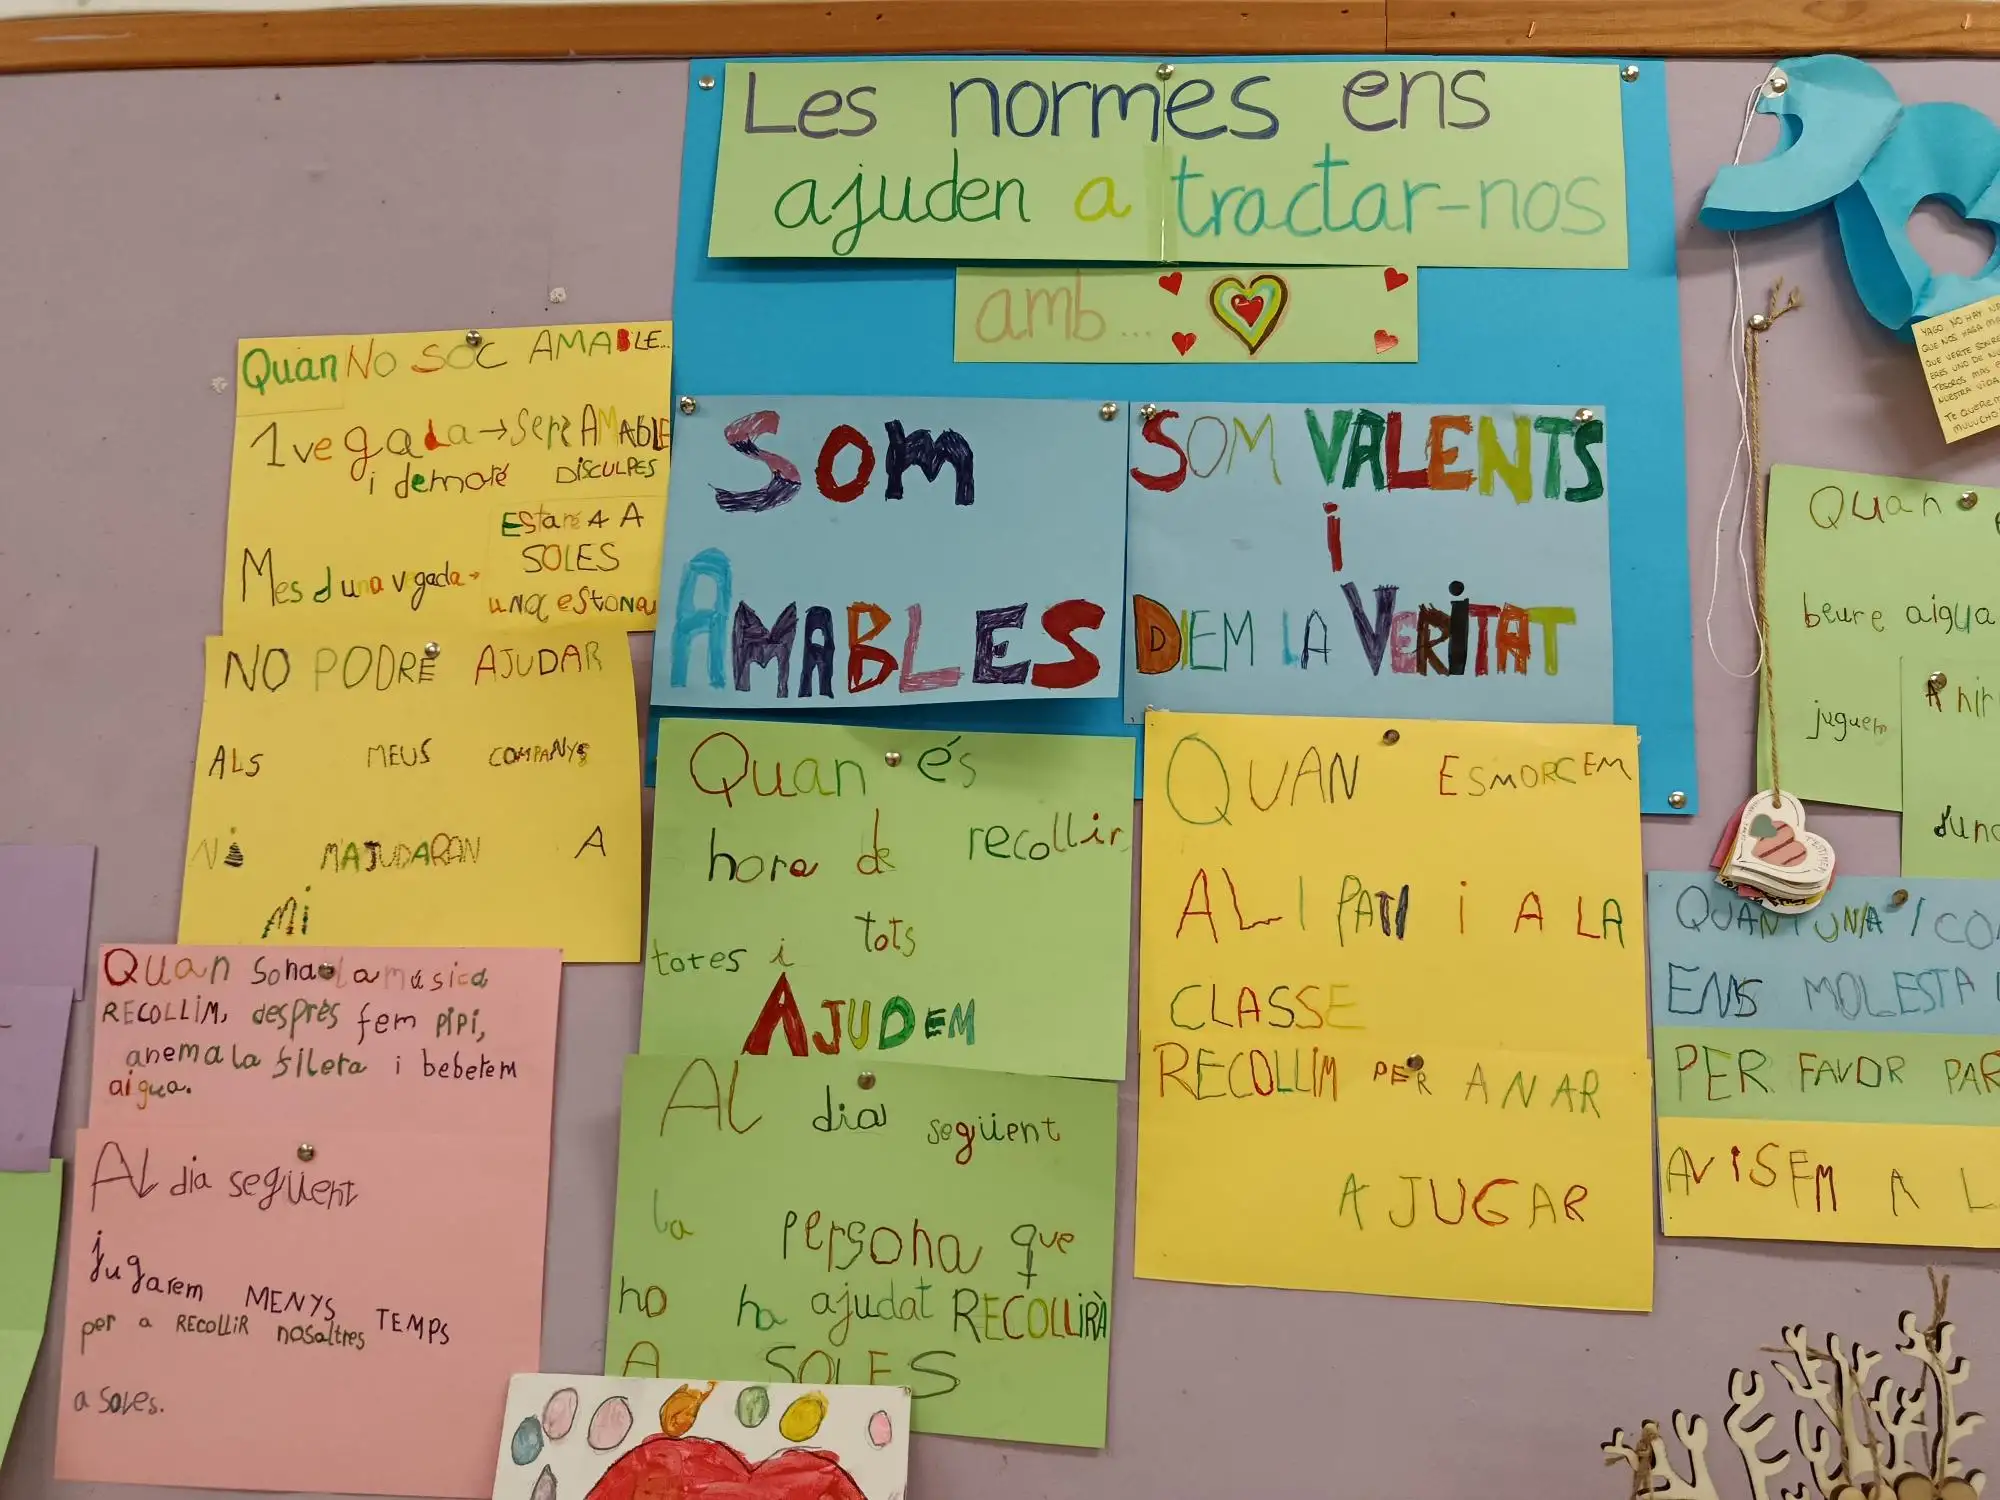 Les normes ens
ajuden a tractar-nos
amb...
Quan NO SOC AMABLE...
1 vegada → Seré AMABLE
i demoré DISCULPES
Mes d una vegada →
EStaré A A
SOLES
una estona
NO PODRÉ AJUDAR
ALS MEUS COMPANYS
Ni M'AJUDARAN A
Mi
Quan Sona la música
RECOLLIM, després fem PIPI,
anem a la fileta i bebetem
aigua.
AL dia següent
jugarem MENYS TEMPS
per a RECOLLIR nosaltres
a soles.
SOM
AMABLES
Quan és
hora de recollir
totes i tots
AJUDEM
Al dia següent
la persona que
no ha ajudat RECOLLIRÀ
A SOLES
SOM VALENTS
i
DIEM LA VERITAT
QUAN ESMORCEM
AL PATI i A LA
CLASSE
RECOLLIM PER ANAR
A JUGAR
YAGO, NO HAY
QUE NOS HAGA
QUE VERTE
ERES UNO DE
TESOROS MAS
NUESTRA VIDA
TE QUEREM
MUUUCHO
Quan
beure aigua
juguem
Anir
QUAN UNA
ENS MOLESTA
PER FAVOR PAR
AVISEM A L